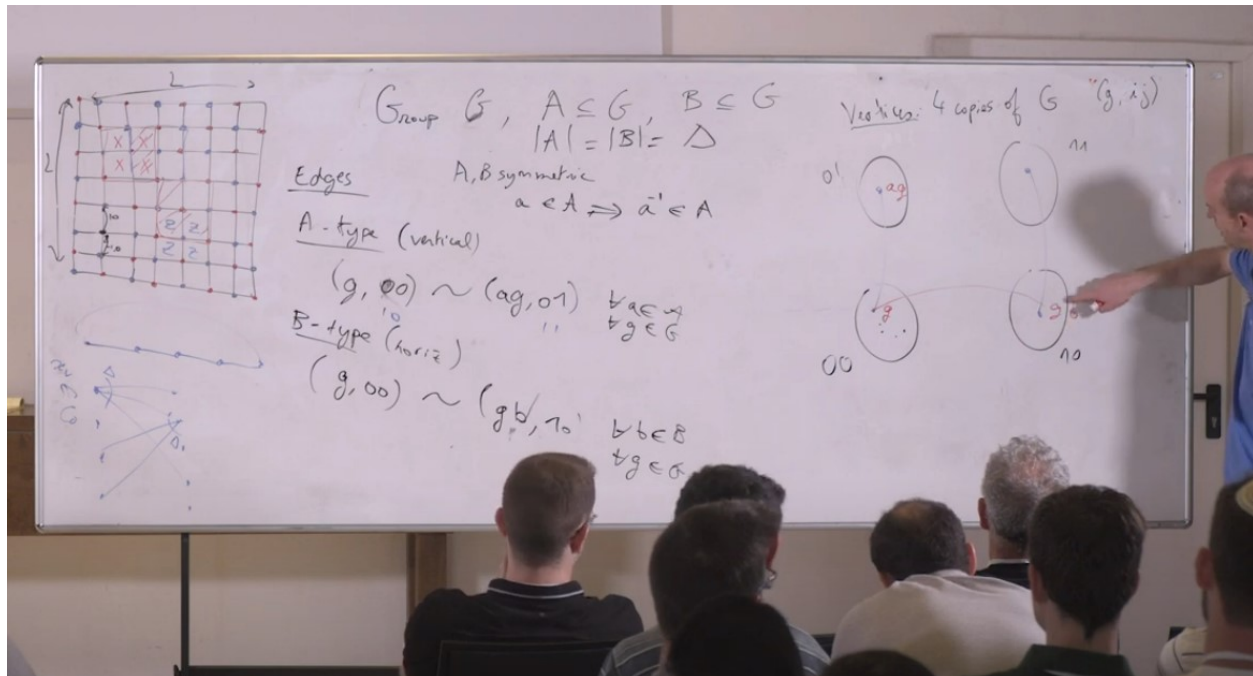 L
L
X X
X X
Z Z
Z Z
Group G, A ⊆ G, B ⊆ G
|A| = |B| = Δ
Edges
A, B symmetric
a ∈ A ⇒ a⁻¹ ∈ A
A-type (vertical)
(g, 00) ~ (ag, 01) ∀a ∈ A
∀g ∈ G
10 11
B-type (horiz)
(g, 00) ~ (gb, 10) ∀b ∈ B
∀g ∈ G
Vertices: 4 copies of G "(g, ij)
01
ag
11
g
00
g
10